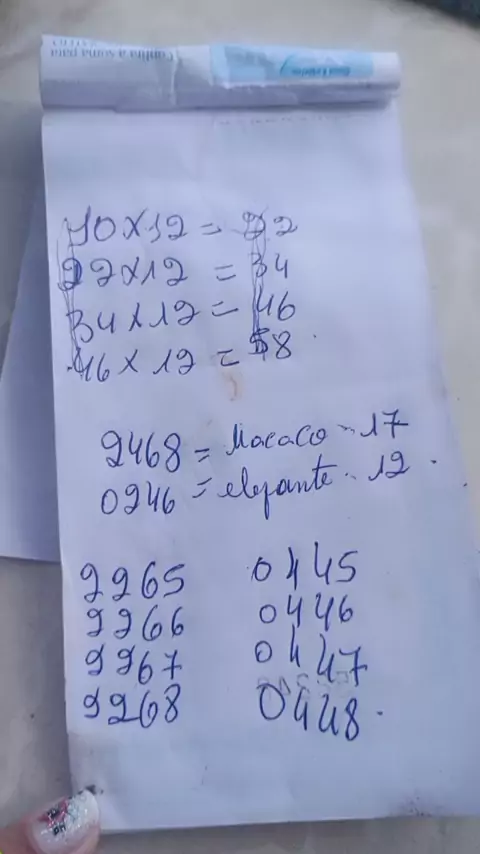 Confira a soma para
10 x 12 = 22
22 x 12 = 34
34 x 12 = 46
46 x 12 = 58
2468 = Macaco - 17
0246 = elefante - 12.
2265 0445
2266 0446
2267 0447
2268 0448.